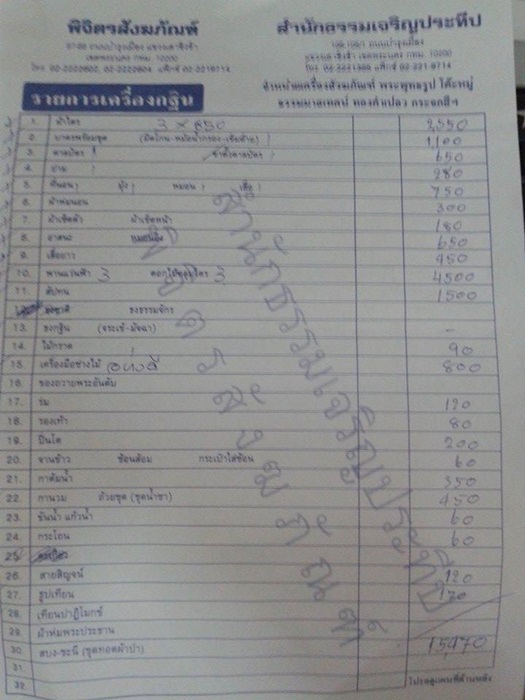 พิจิตรสังฆภัณฑ์
สำนักธรรมเจริญประทีป
87-89 ถนนบำรุงเมือง แขวงเสาชิงช้า
เขตพระนคร กทม. 10200
โทร. 02-2220802, 02-2222804 แฟ็กซ์ 02-2218714
ถนนบำรุงเมือง
เขตพระนคร กทม. 10200
จำหน่ายเครื่องสังฆภัณฑ์ พระพุทธรูป โต๊ะหมู่
ธรรมมาสเทศน์
รายการเครื่องกฐิน
1. ผ้าไตร 3 x 850 2,550
2. บาตรพร้อมชุด 1,100
3. 650
4. ย่าม 280
5. ที่นอน / มุ้ง / หมอน / เสื่อ / 750
6. ผ้าห่มนอน 300
7. ผ้าเช็ดตัว ผ้าเช็ดหน้า 180
8. อาสนะ หมอนอิง 650
9. เสื่อยาว 450
10. พานแว่นฟ้า 3 3 4500
11. สัปทน 1500
ธงชาติ ธงธรรมจักร
13. ธงกฐิน (จระเข้-มัจฉา) -
14. ไม้กวาด 90
15. เครื่องมือช่างไม้ อย่างดี 800
16. ของถวายพระอันดับ
17. ร่ม 120
18. รองเท้า 80
19. ปิ่นโต 200
20. จานข้าว ช้อนส้อม กระเป๋าใส่ช้อน 60
21. กาต้มน้ำ 350
22. กานวม ถ้วยชุด (ชุดน้ำชา) 450
23. ขันน้ำ แก้วน้ำ 60
24. กระโถน 60
25.
26. สายสิญจน์ 120
27. ธูปเทียน 120
28. เทียนปาฏิโมกข์
29. ผ้าห่มพระประธาน
30. สบง-ขะนี (ชุดทอดผ้าป่า) 15,470
31.
32. โปรดดูแผนที่ด้านหลัง
สำนักธรรมเจริญประทีป
พิจิตรสังฆภัณฑ์